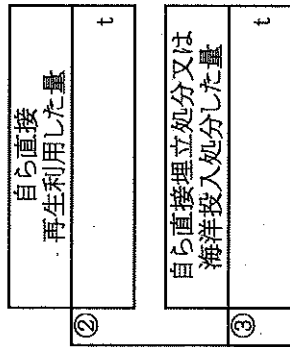 自ら直接
再生利用した量
② t
自ら直接埋立処分又は
海洋投入処分した量
③ t